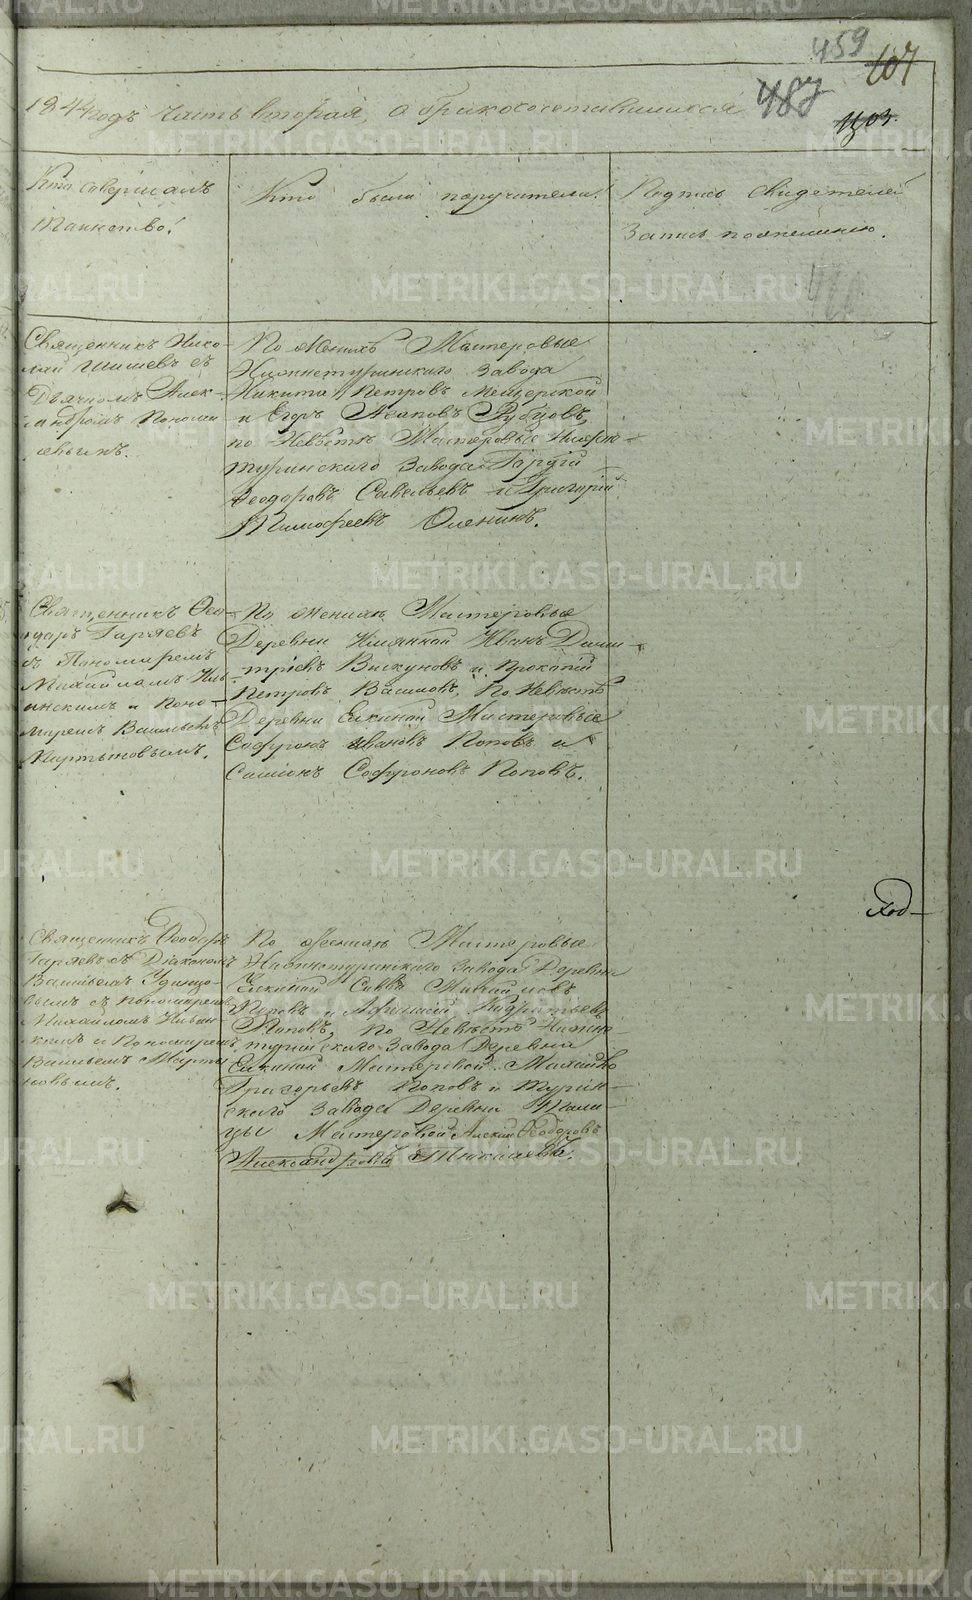 459
107
487
1103.
1844 годъ Часть вторая, о бракосочетавшихся
Кто совершалъ
Таинство.
Кто были поручители.
Подпись свидетелей
Запись по желанію.
Священникъ Нико-
лай Шишевъ съ
Дьячкомъ Алек-
сандромъ
По женихѣ Мастеровые
Нижнетуринскаго Завода
Никита Петровъ Мещерской
и Егоръ Агаповъ Рубцовъ,
по Невѣстѣ Мастеровые Нижне-
туринскаго Завода Гордій
Ѳеодоровъ Савельевъ и Григорій
Тимофеевъ Оленинъ.
Священникъ Ѳео-
доръ Гаряевъ
съ Пономаремъ
Михайломъ Ки-
анскимъ и Поно-
маремъ Васильемъ
Мартыновымъ.
По женихѣ Мастеровые
Деревни Имянной Иванъ Дими-
тріевъ Вискуновъ и Прокопій
Петровъ Васиповъ, По Невѣстѣ
Деревни Елкиной Мастеровые
Софронъ Ивановъ Поповъ и
Симіонъ Софроновъ Поповъ.
Священникъ Ѳеодоръ
Гаряевъ съ Діакономъ
Васильемъ Удинцо-
вымъ съ пономаремъ
Михайломъ Киан-
скимъ и Пономаремъ
Васильемъ Марты-
новымъ.
По женихѣ Мастеровые
Нижнетуринскаго Завода Деревни
Елкиной Савва Михайловъ
Поповъ и Афанасій Кодратьевъ
Поповъ, по Невѣстѣ Нижне-
туринскаго Завода Деревни
Елкиной Мастеровой Михайло
Григорьевъ Поповъ и Турин-
скаго Завода Деревни Имяни-
цы Мастеровой Алексій Ѳеодоровъ
Александровъ
METRIKI.GASO-URAL.RU